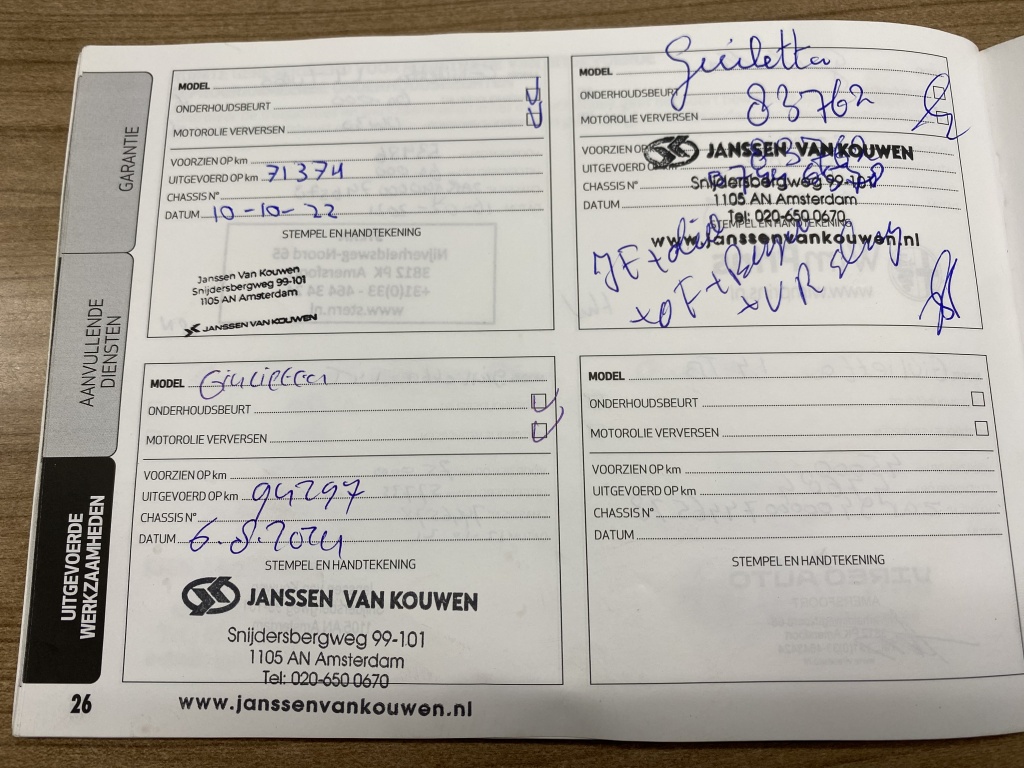 GARANTIE
AANVULLENDE
DIENSTEN
UITGEVOERDE
WERKZAAMHEDEN
MODEL
ONDERHOUDSBEURT
MOTOROLIE VERVERSEN
VOORZIEN OP km
UITGEVOERD OP km 71374
CHASSIS N°
DATUM 10-10-22
STEMPEL EN HANDTEKENING
Janssen Van Kouwen
Snijdersbergweg 99-101
1105 AN Amsterdam
JANSSEN VAN KOUWEN
MODEL Giulietta
ONDERHOUDSBEURT 83762
MOTOROLIE VERVERSEN
VOORZIEN OP
UITGEVOERD OP km 83762
CHASSIS N°
DATUM
JANSSEN VAN KOUWEN
Snijdersbergweg 99-101
1105 AN Amsterdam
Tel: 020-650 0670
STEMPEL EN HANDTEKENING
www.janssenvankouwen.nl
MODEL Giulietta
ONDERHOUDSBEURT
MOTOROLIE VERVERSEN
VOORZIEN OP km
UITGEVOERD OP km 94297
CHASSIS N°
DATUM 6.8.2024
STEMPEL EN HANDTEKENING
JANSSEN VAN KOUWEN
Snijdersbergweg 99-101
1105 AN Amsterdam
Tel: 020-650 0670
www.janssenvankouwen.nl
MODEL
ONDERHOUDSBEURT
MOTOROLIE VERVERSEN
VOORZIEN OP km
UITGEVOERD OP km
CHASSIS N°
DATUM
STEMPEL EN HANDTEKENING
26